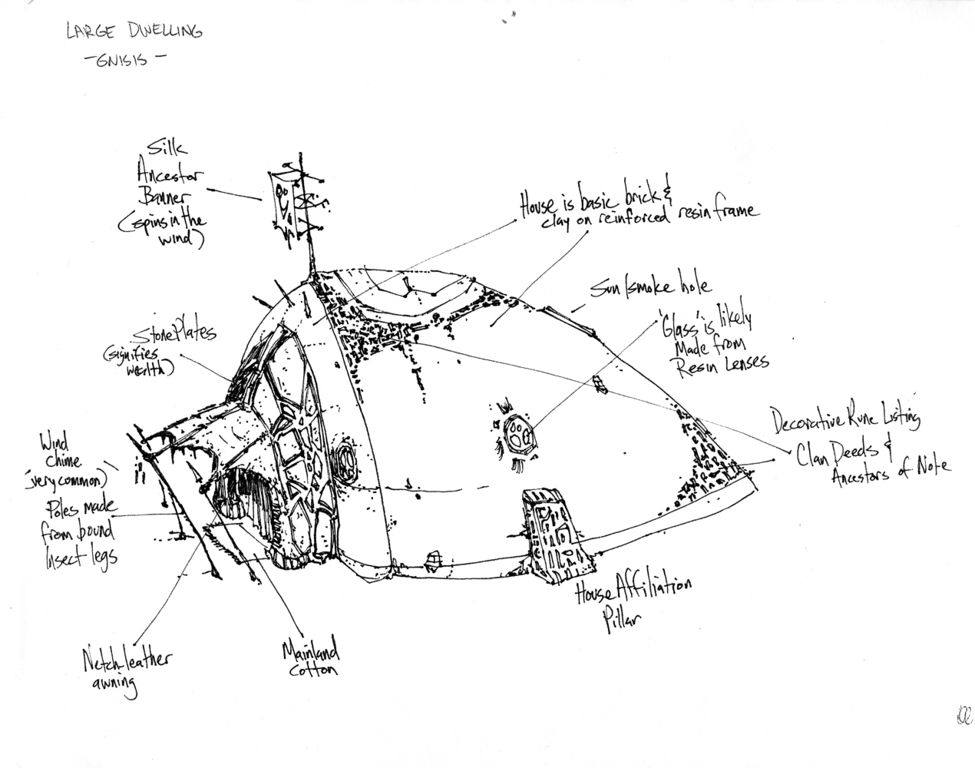 LARGE DWELLING
- GNISIS -
Silk
Ancestor
Banner
(spins in the
wind)
House is basic brick &
clay on reinforced resin frame
Sun/smoke hole
'Glass' is likely
Made from
Resin Lenses
Stone Plates
(signifies
wealth)
Decorative Rune Listing
Clan Deeds &
Ancestors of Note
Wind
chime
(very common)
Poles made
from bound
Insect legs
House Affiliation
Pillar
Netch leather
awning
Mainland
cotton